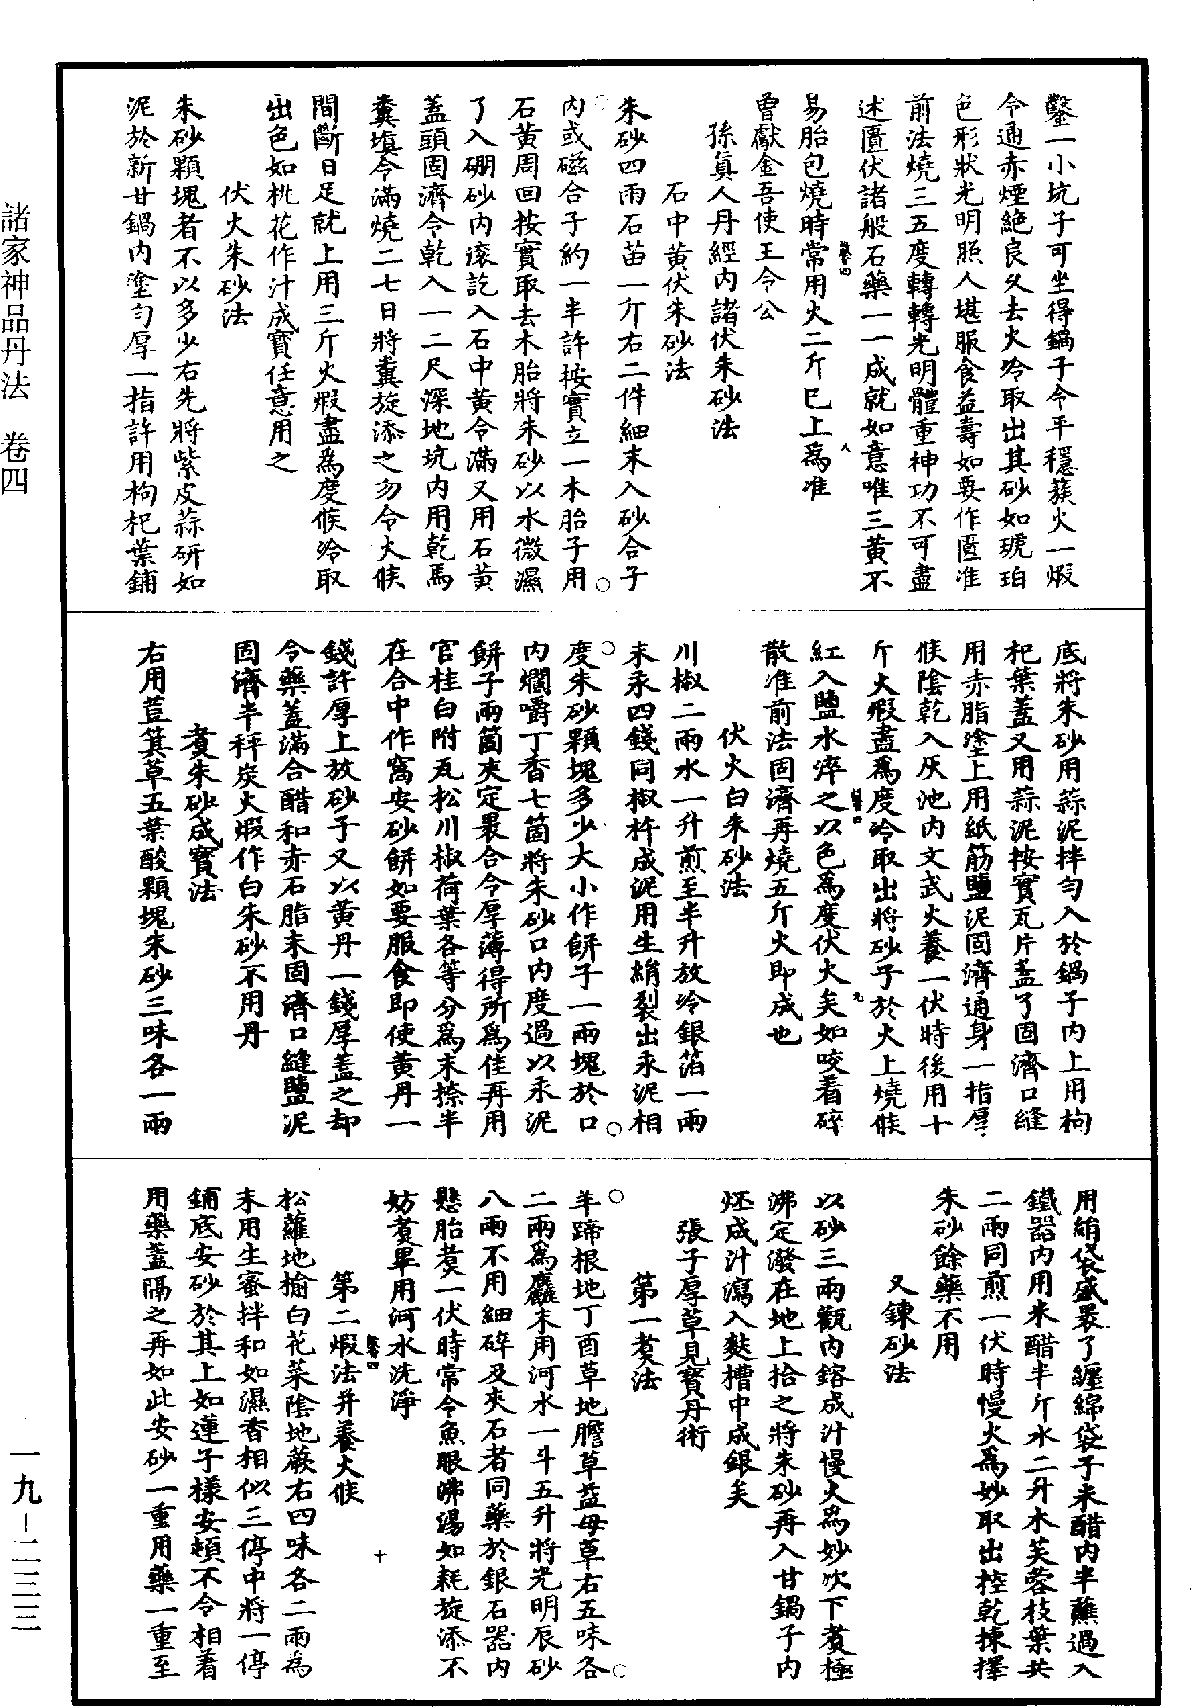 諸家神品丹法　卷四
鑿一小坑子可坐得鍋子令平穩簇火一煆
令通赤煙絕良久去火冷取出其砂如琥珀
色形狀光明照人堪服食益壽如要作匱准
前法燒三五度轉轉光明體重神功不可盡
述匱伏諸般石藥一一成就如意唯三黃不
易胎包燒時常用火二斤巳上為准
曾獻金吾使王令公
孫真人丹經內諸伏朱砂法
石中黃伏朱砂法
朱砂四兩石苗一斤右二件細末入砂合子
內或磁合子約一半許按實立一木胎子用
石黃周回按實取去木胎將朱砂以水微濕
了入硼砂內滚訖入石中黃令滿又用石黃
蓋頭固濟令乾入一二尺深地坑內用乾馬
糞塡令滿燒二七日將糞旋添之勿令火候
間斷日足就上用三斤火煆盡為度候冷取
出色如桃花作汁成寶任意用之
伏火朱砂法
朱砂顆塊者不以多少右先將紫皮蒜研如
泥於新甘鍋內塗勻厚一指許用枸杞葉鋪
底將朱砂用蒜泥拌勻入於鍋子內上用枸
杞葉蓋又用蒜泥按實瓦片盖了固濟口縫
用赤脂塗上用紙筋鹽泥固濟通身一指厚
候陰乾入灰池內文武火養一伏時後用十
斤火煆盡為度冷取出將砂子於火上燒候
紅入鹽水淬之以色為度伏火矣如咬着碎
散准前法固濟再燒五斤火即成也
伏火白朱砂法
川椒二兩水一升煎至半升放冷銀箔一兩
末汞四錢同椒杵成泥用生絹裂出汞泥相
度朱砂顆塊多少大小作餅子一兩塊於口
內爛嚼丁香七箇將朱砂口內度過以汞泥
餅子兩箇夾定㝡合令厚薄得所為佳再用
官桂白附瓦松川椒荷葉各等分為末捺半
在合中作窩安砂餅如要服食即使黃丹一
錢許厚上放砂子又以黃丹一錢厚蓋之却
令藥蓋滿合醋和赤石脂末固濟口縫鹽泥
固濟半秤炭火煆作白朱砂不用丹
煑朱砂成寶法
右用荳箕草五葉酸顆塊朱砂三味各一兩
用絹袋盛㝡了纏綿袋子米醋內半蘸過入
鐵器內用米醋半斤水二升木芙蓉枝葉共
二兩同煎一伏時慢火為妙取出控乾揀擇
朱砂餘藥不用
又鍊砂法
以砂三兩甑內鎔成汁慢火為妙吹下煑極
沸定潑在地上拾之將朱砂再入甘鍋子內
烝成汁瀉入麩槽中成銀矣
張子厚草見寶丹術
第一煑法
羊蹄根地丁酉草地膽草益母草右五味各
二兩為麤末用河水一斗五升將光明辰砂
八兩不用細碎及夾石者同藥於銀石器內
懸胎煑一伏時常令魚眼沸湯如耗旋添不
妨煑畢用河水洗淨
第二煆法并養火候
松蘿地榆白花菜陰地蕨右四味各二兩為
末用生蜜拌和如濕香相似三停中將一停
鋪底安砂於其上如蓮子樣安頓不令相着
用藥蓋隔之再如此安砂一重用藥一重至
一九－二三三